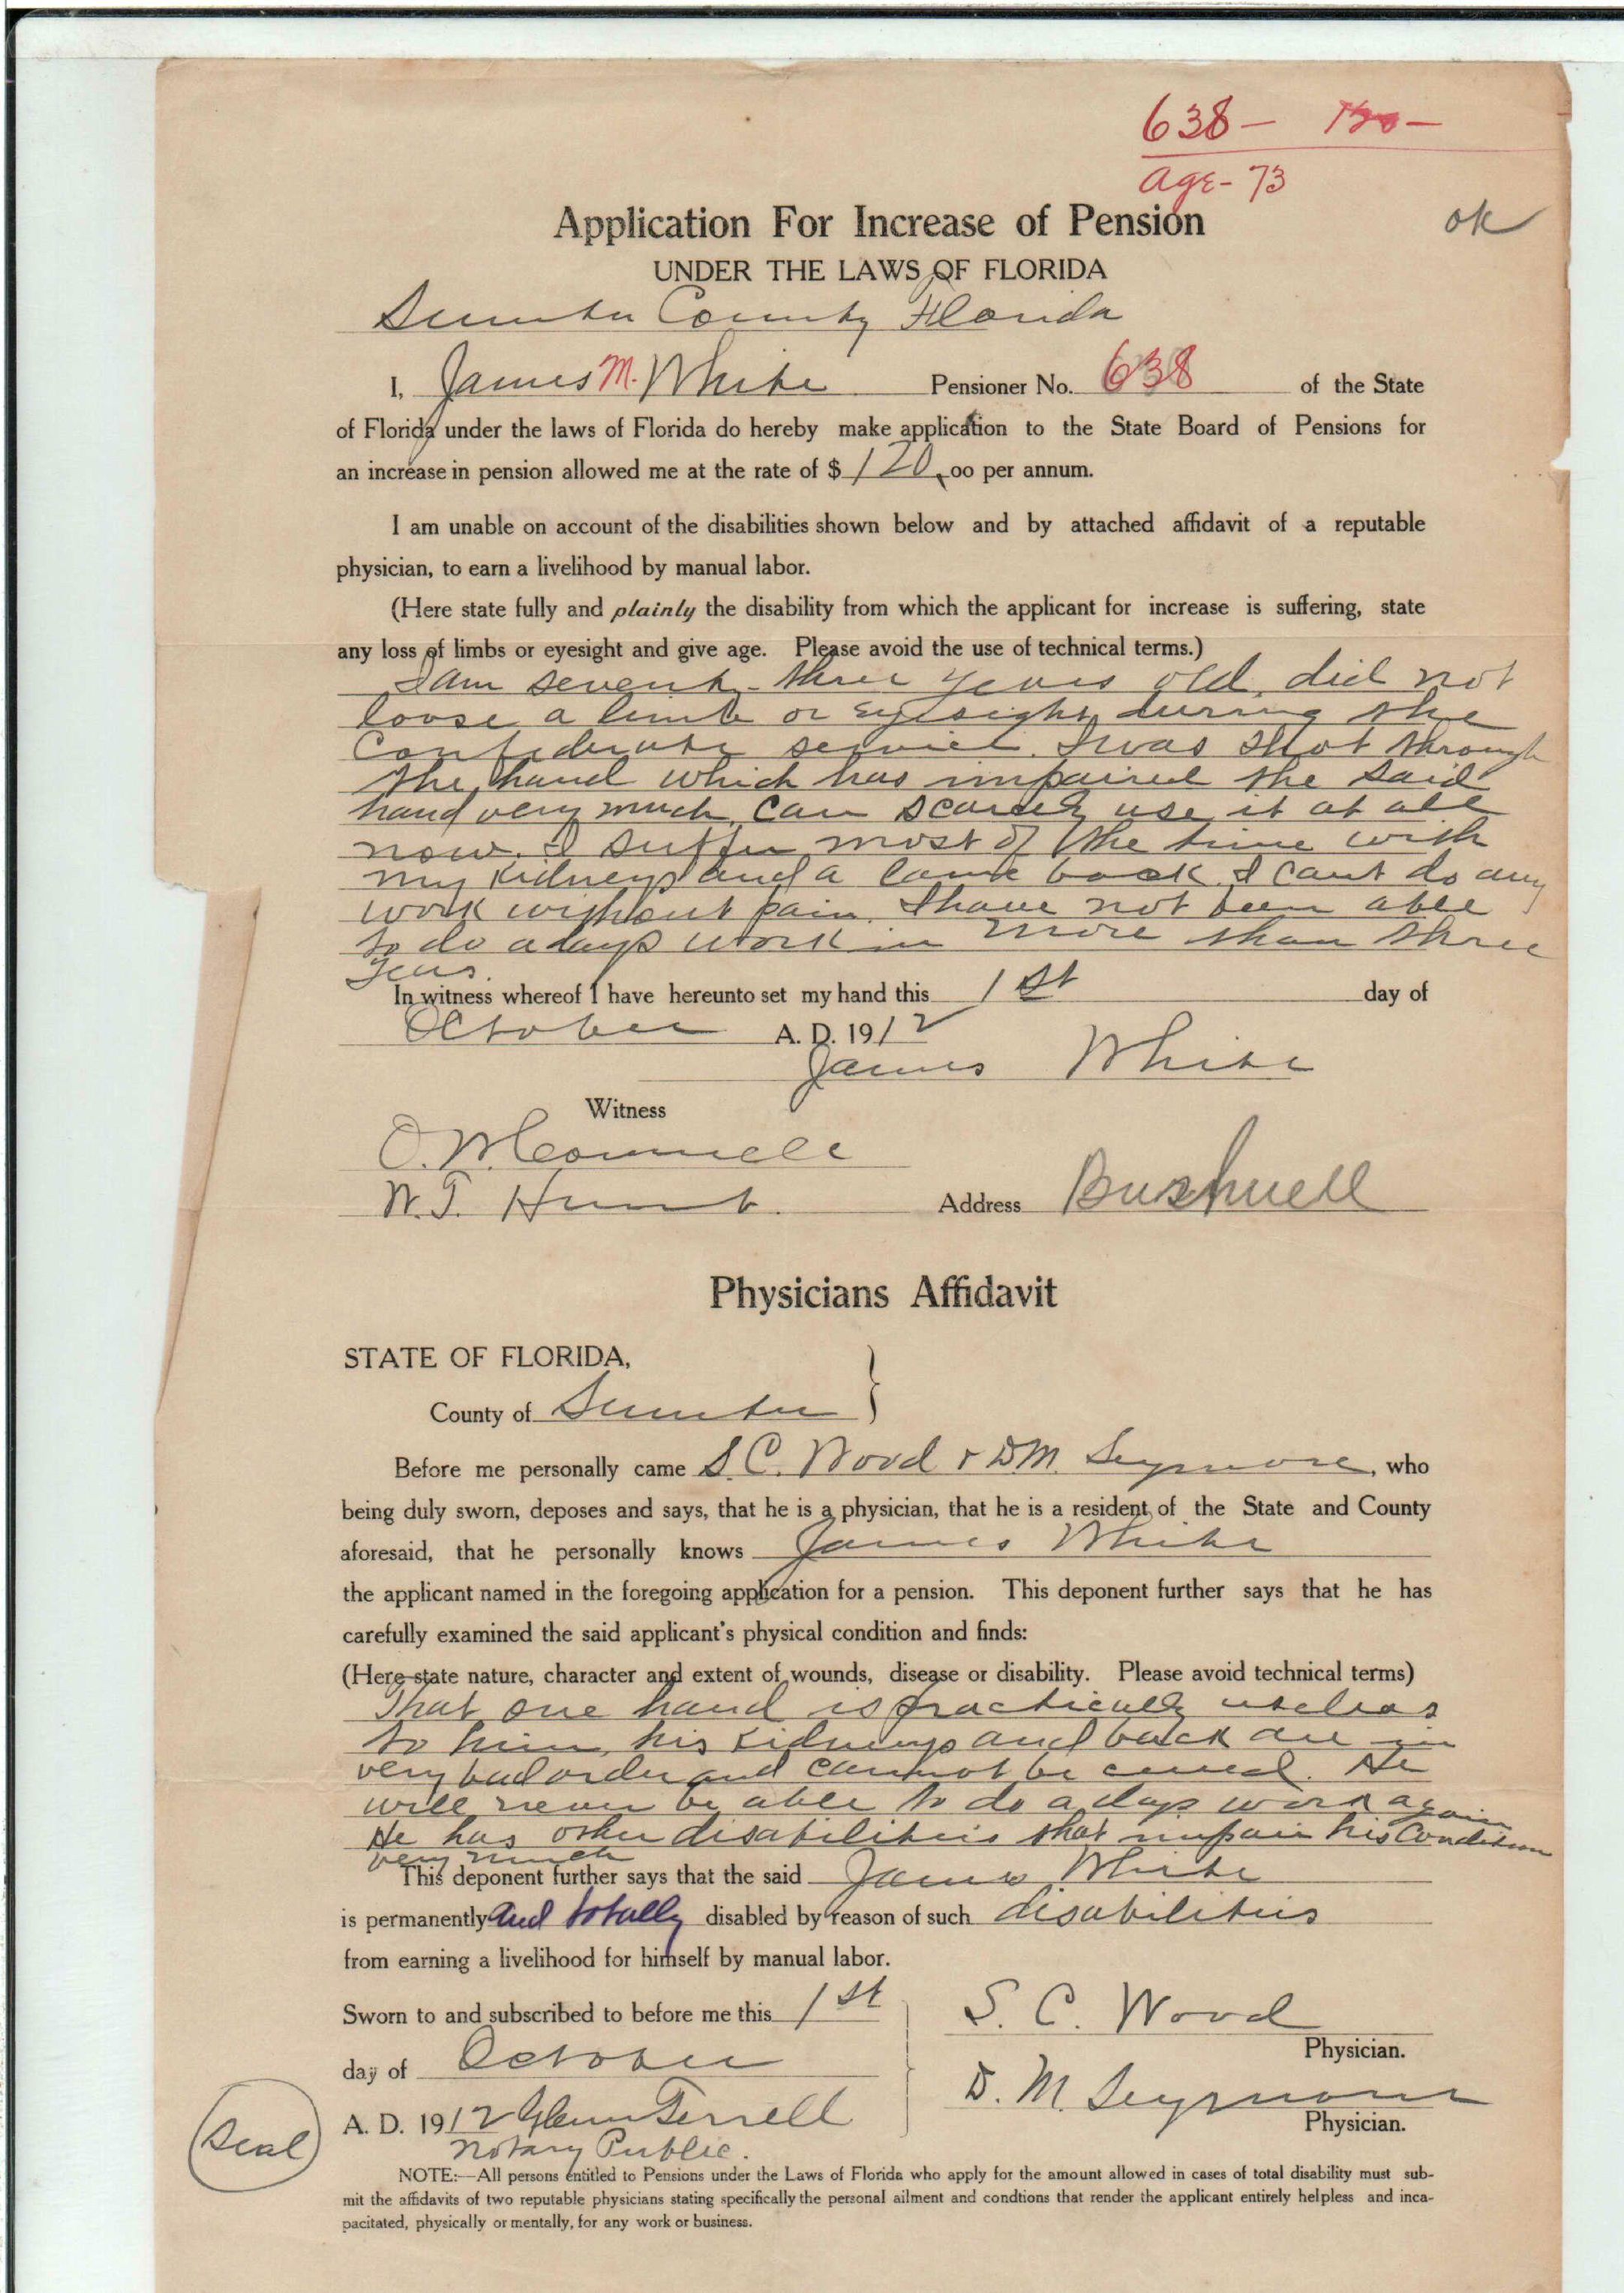 638 —
age - 73
ok
Application For Increase of Pension
UNDER THE LAWS OF FLORIDA
Sumter County Florida
I, James M. White Pensioner No. 638 of the State
of Florida under the laws of Florida do hereby make application to the State Board of Pensions for
an increase in pension allowed me at the rate of $ 120.00 per annum.
I am unable on account of the disabilities shown below and by attached affidavit of a reputable
physician, to earn a livelihood by manual labor.
(Here state fully and plainly the disability from which the applicant for increase is suffering, state
any loss of limbs or eyesight and give age. Please avoid the use of technical terms.)
I am seventy-three years old, did not
loose a limb or eyesight during the
Confederate service. I was shot through
the hand which has impaired the said
hand very much, can scarcely use it at all
now. I suffer most of the time with
my kidneys and a lame back. I cant do any
work without pain. I have not been able
to do a days work in more than three
years.
In witness whereof I have hereunto set my hand this 1st day of
October A. D. 1912
James White
Witness
O. M. Connell
W. T. Hunt. Address Bushnell
Physicians Affidavit
STATE OF FLORIDA,
County of Sumter
Before me personally came S. C. Wood & D. M. Seymore, who
being duly sworn, deposes and says, that he is a physician, that he is a resident of the State and County
aforesaid, that he personally knows James White
the applicant named in the foregoing application for a pension. This deponent further says that he has
carefully examined the said applicant's physical condition and finds:
(Here state nature, character and extent of wounds, disease or disability. Please avoid technical terms)
That one hand is practically useless
to him, his kidneys and back are in
very bad order and cannot be cured. He
will never be able to do a days work again
He has other disabilities that impair his condition
very much
This deponent further says that the said James White
is permanently and totally disabled by reason of such disabilities
from earning a livelihood for himself by manual labor.
Sworn to and subscribed to before me this 1st S. C. Wood
Physician.
day of October
D. M. Seymour
A. D. 1912 Glenn Terrell Physician.
Seal
Notary Public.
NOTE:—All persons entitled to Pensions under the Laws of Florida who apply for the amount allowed in cases of total disability must sub-
mit the affidavits of two reputable physicians stating specifically the personal ailment and condtions that render the applicant entirely helpless and inca-
pacitated, physically or mentally, for any work or business.